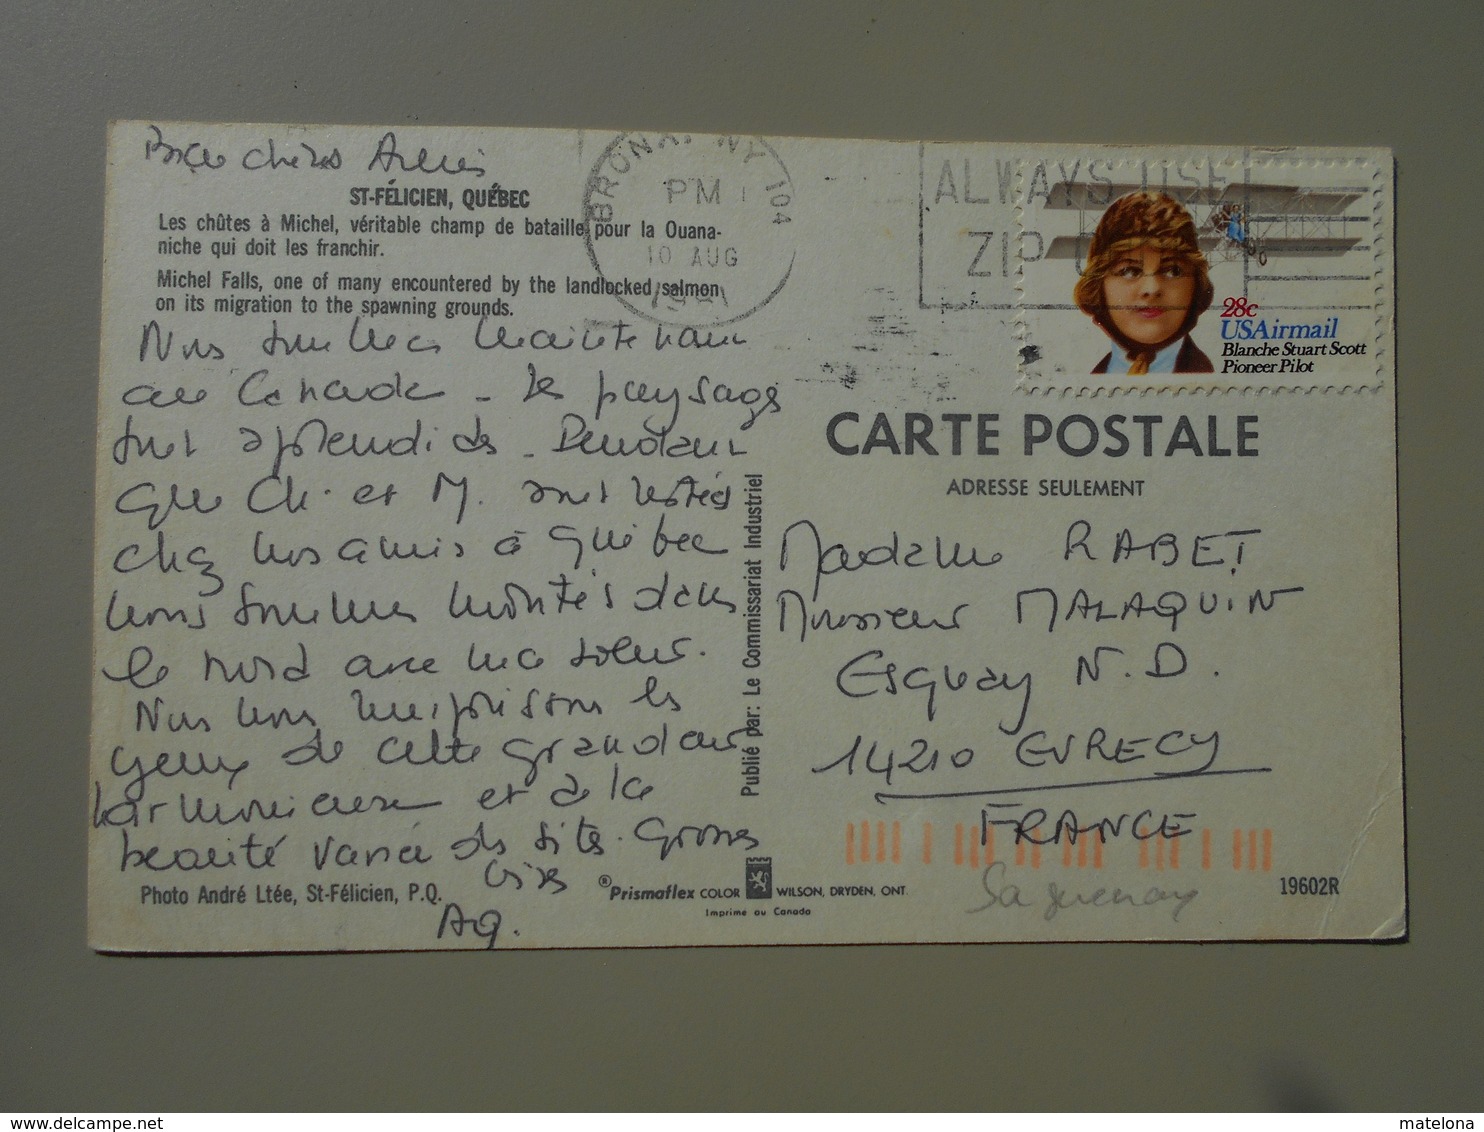 chers Amis
ST-FÉLICIEN, QUÉBEC
Les chûtes à Michel, véritable champ de bataille pour la Ouana-
niche qui doit les franchir.
Michel Falls, one of many encountered by the landlocked salmon
on its migration to the spawning grounds.
Nous sommes maintenant
au Canada - les paysages
sont splendides - Pendant
que Ch. et M. sont restés
chez nos amis à Québec
nous sommes montés dans
le nord avec ma soeur.
Nous nous remplissons les
yeux de cette grandeur
harmonieuse et de la
beauté variée des sites. Grosses
bises
AG.
Photo André Ltée, St-Félicien, P.Q.
® Prismaflex COLOR WILSON, DRYDEN, ONT.
Imprime au Canada
Publié par: Le Commissariat Industriel
BRONX, NY 104
PM
10 AUG
1981
ALWAYS USE
ZIP
28c
USAirmail
Blanche Stuart Scott
Pioneer Pilot
CARTE POSTALE
ADRESSE SEULEMENT
Madame RABET
Monsieur MALAQUIN
Esquay N.D.
14210 EVRECY
FRANCE
Saguenay
19602R
matelona